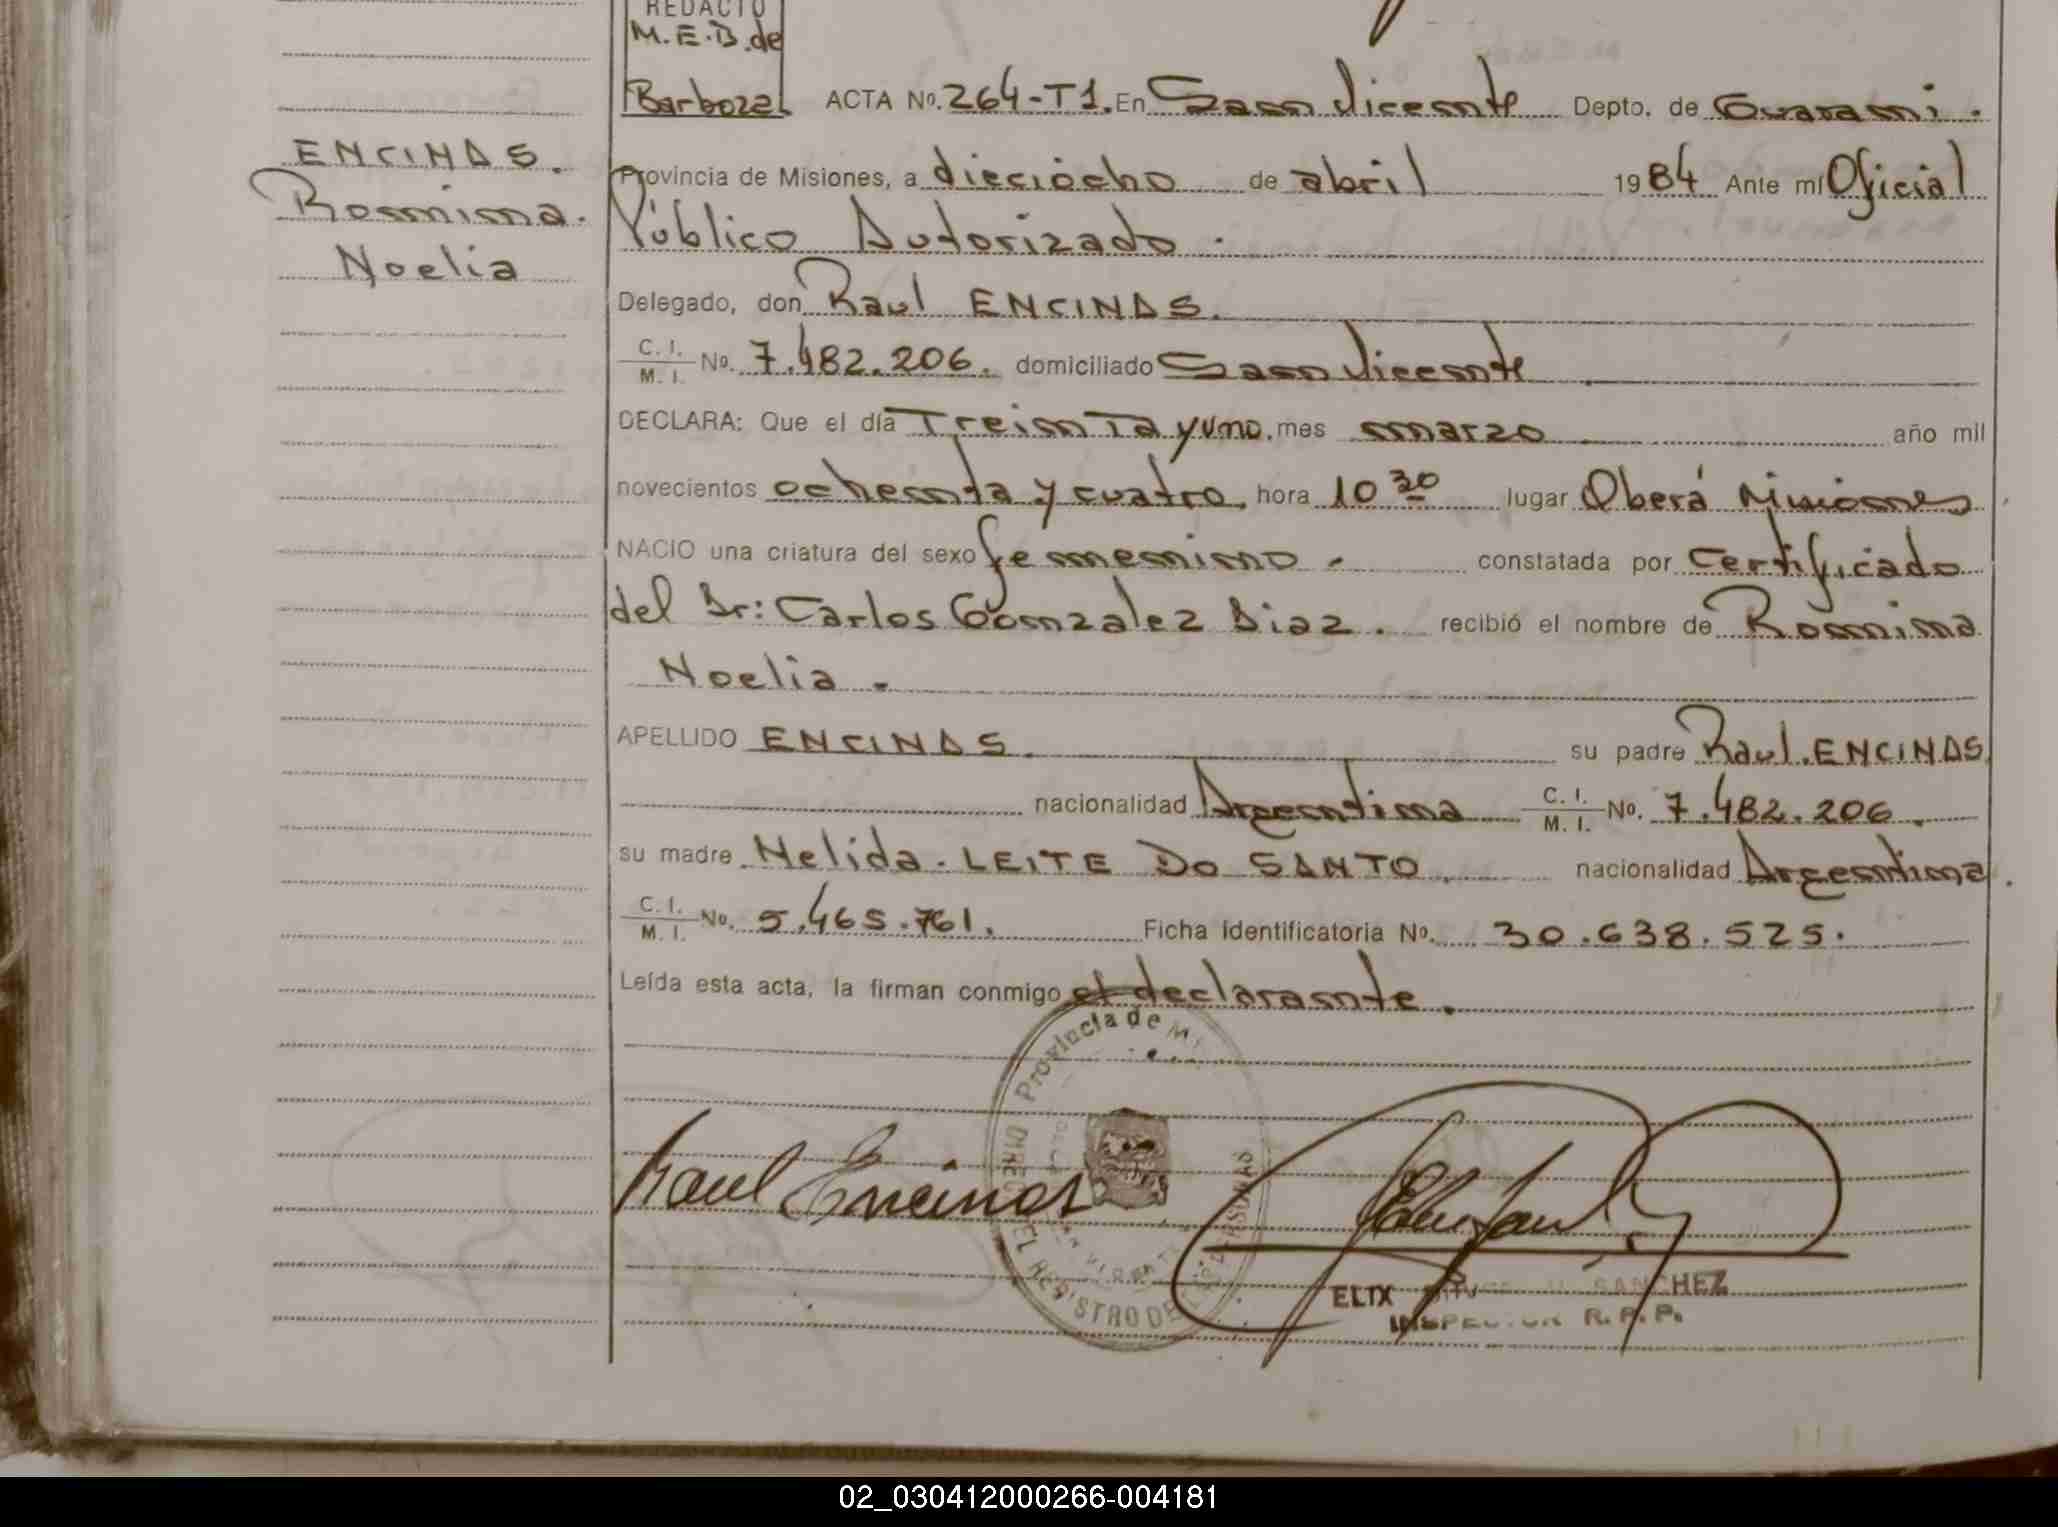 REDACTO
M.E.B. de
Barboza
ACTA No. 264-T1. En San Vicente Depto. de Guarani.
ENCINAS.
Provincia de Misiones, a dieciocho de abril 1984 Ante mí Oficial
Romina.
Público Autorizado.
Noelia
Delegado, don Raul ENCINAS.
C. I. M. I. No. 7.482.206. domiciliado San Vicente
DECLARA: Que el día Treinta y uno, mes marzo año mil
novecientos ochenta y cuatro, hora 10 30 lugar Oberá Misiones
NACIO una criatura del sexo femenino. constatada por Certificado
del Dr: Carlos Gonzalez Diaz. recibió el nombre de Romina
Noelia.
APELLIDO ENCINAS. su padre Raul. ENCINAS
nacionalidad Argentina C. I. M. I. No. 7.482.206.
su madre Nelida. LEITE DO SANTO. nacionalidad Argentina.
C. I. M. I. No. 5.465.761. Ficha identificatoria No. 30.638.525.
Leída esta acta, la firman conmigo el declarante.
Provincia de Mi
Raul Encinas
EL REGISTRO DE
ELIX SANCHEZ
INSPECTOR R. P. P.
02_030412000266-004181